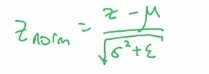 z_norm = (z - μ) / √(σ² + ε)